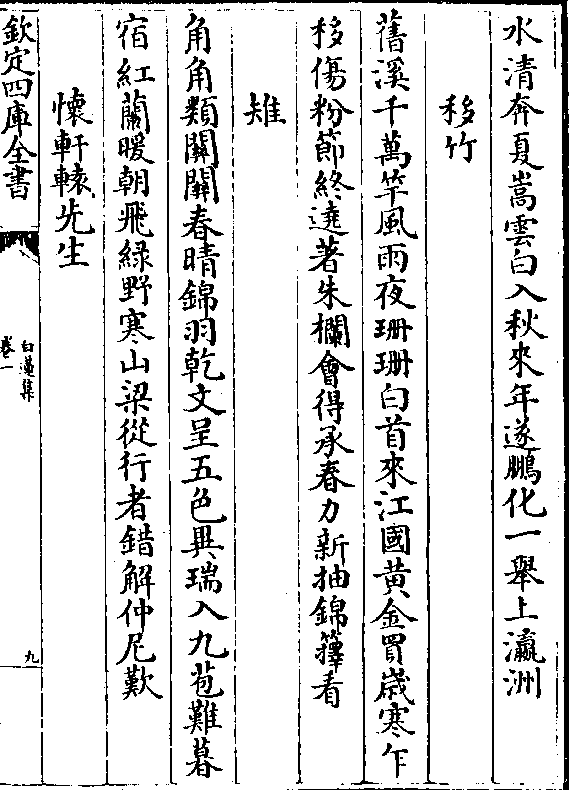 水清奔夏嵩雲白入秋來年遂鵬化一舉上瀛洲
移竹
舊溪千萬竿風雨夜珊珊白首來江國黃金買歲寒乍
移傷粉節終遶著朱欄會得承春力新抽錦籜看
雉
角角類關關春晴錦羽乾文呈五色異瑞入九苞難暮
宿紅蘭暖朝飛綠野寒山梁從行者錯解仲尼歎
懷軒轅先生
欽定四庫全書
白蓮集
卷一
九